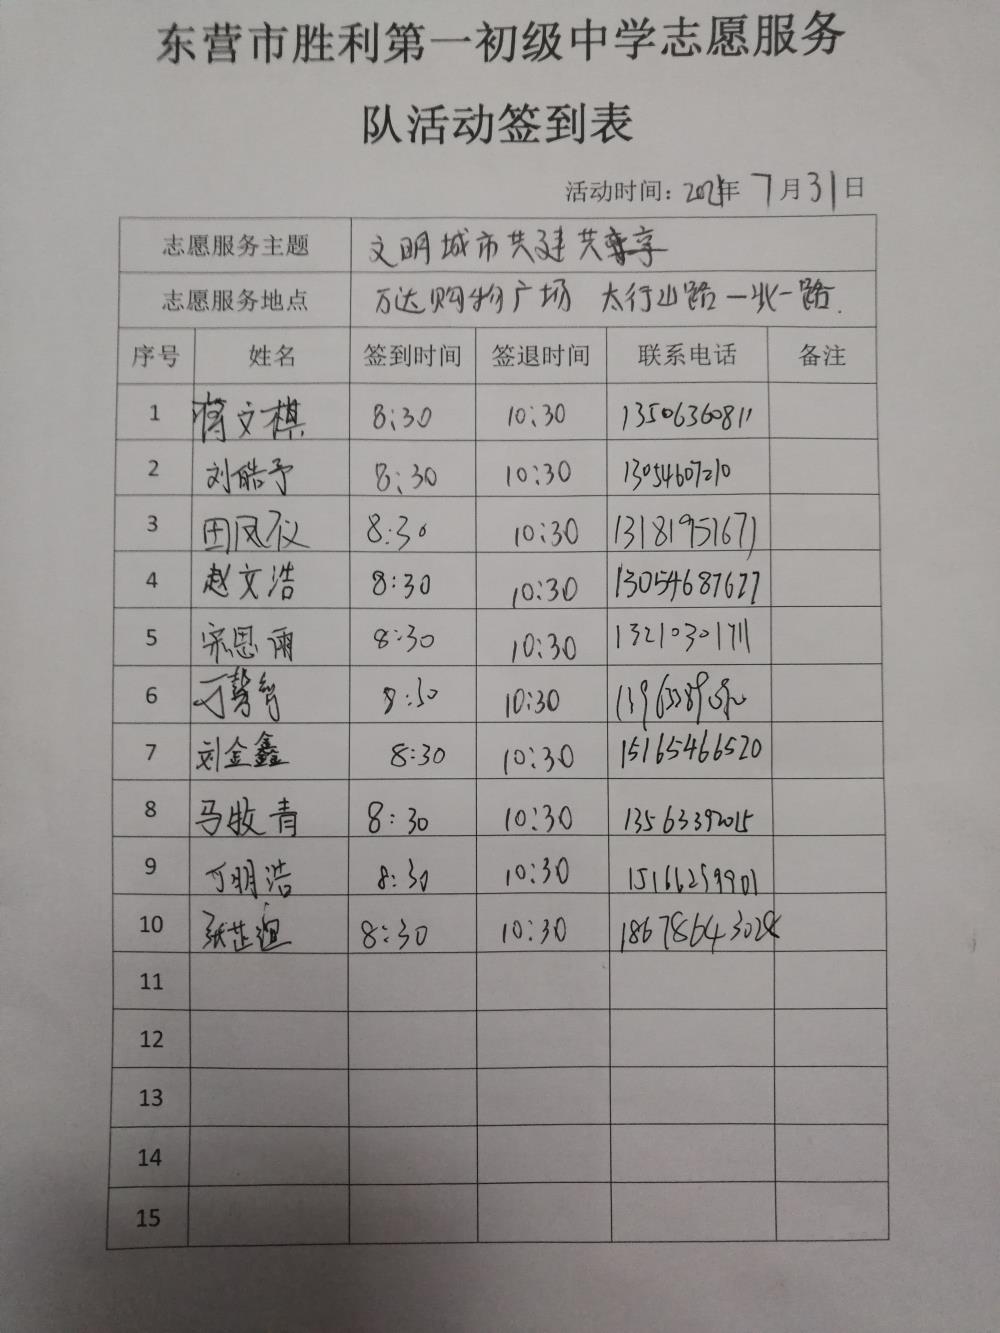 东营市胜利第一初级中学志愿服务
队活动签到表
活动时间：2021年 7月31日
志愿服务主题 文明城市共建共享
志愿服务地点 万达购物广场 太行山路－北一路.
序号 姓名 签到时间 签退时间 联系电话 备注
1 蒋文棋 8:30 10:30 13506360811
2 刘皓予 8:30 10:30 13054607210
3 田凤仪 8:30 10:30 13181951671
4 赵文浩 8:30 10:30 13054687677
5 宋思雨 8:30 10:30 13210301711
6 8:30 10:30
7 刘金鑫 8:30 10:30 15165466520
8 马牧青 8:30 10:30 13563392015
9 丁明浩 8:30 10:30 15166259901
10 张芷 8:30 10:30 18678643028
11
12
13
14
15